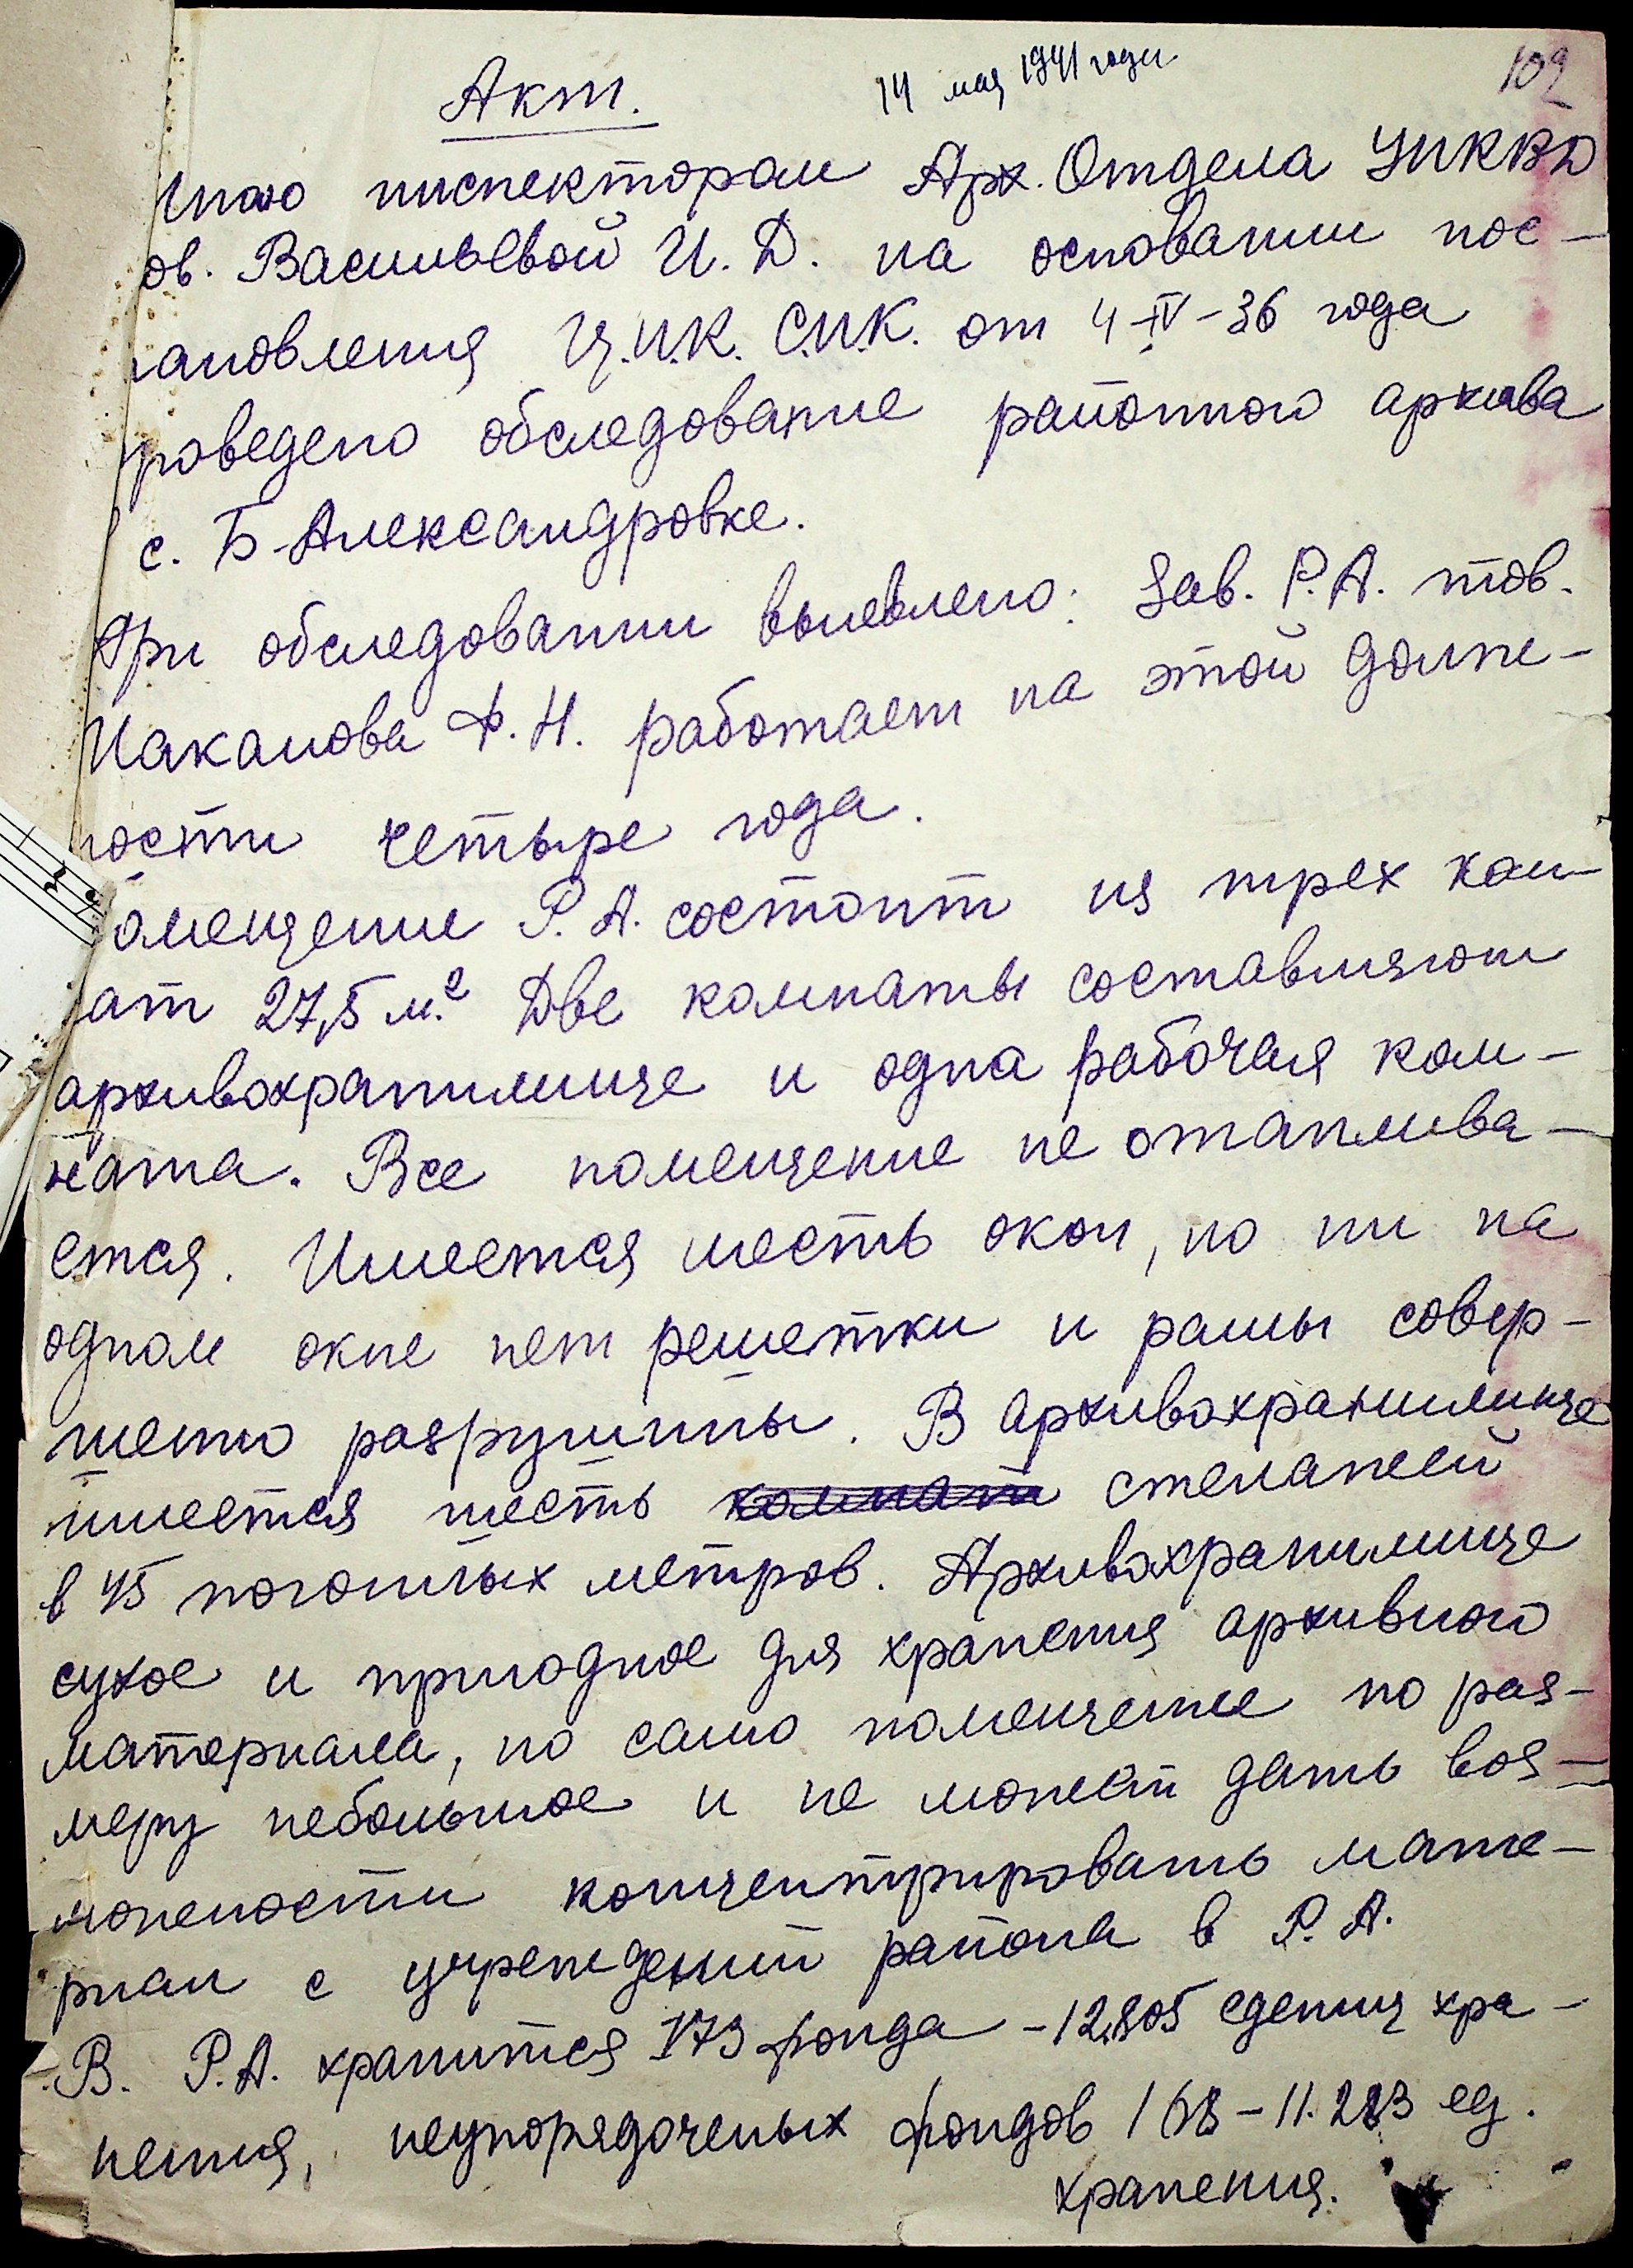 14 мая 1941 года
102
Акт.
Мною инспектором Арх. Отдела УНКВД
ов. Васильевой И. Д. на основании пос-
тановления Ц.И.К. С.Н.К. от 4-IV-36 года
проведено обследование районного архива
с. Б-Александровке.
При обследовании выевлено: Зав. Р.А. тов.
Исакамова Ф.Н. работает на этой долже-
ности четыре года.
омещение Р.А. состоит из трех ком-
ат 27,5 м.² Две комнаты составляют
архивохранилище и одна рабочая ком-
ната. Все помещение не отаплива-
ется. Имеется шесть окон, но ни на
одном окне нет решетки и рамы совер-
шенно разрушины. В архивохранилище
имеется шесть комнат стелажей
в 45 погонных метров. Архивохранилище
сухое и пригодное для хранения архивного
материала, но само помещение по раз-
меру небольшое и не может дать воз-
можености концентрировать мате-
риал с учреждений района в Р.А.
В. Р.А. хранится 173 фонда - 12,805 едениц хра-
нения, неупорядоченых фондов 168 - 11.283 ед.
хранения.